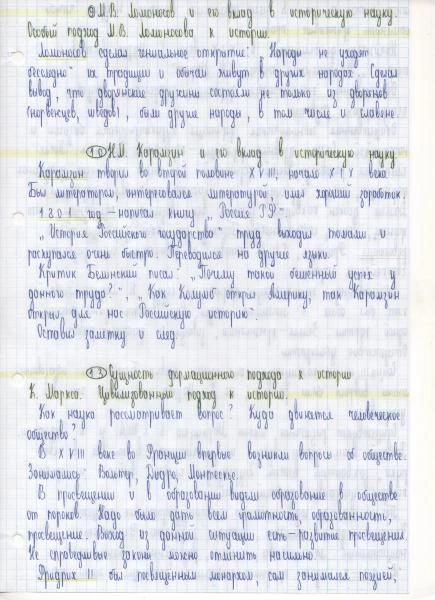 ⑨ М.В. Ломоносов и его вклад в историческую науку.
Особый подход М.В. Ломоносова к истории.
Ломоносов сделал гениальное открытие: "Народы не уходят
бесследно" их традиции и обычаи живут в других народах. Сделал
вывод, что дворянские дружины состояли не только из
(норвежцев, шведов), были другие народы, в том числе и славяне.
⑩ Н.М. Карамзин и его вклад в историческую науку
Карамзин творил во второй половине XVIII, начало XIX века
Был литератором, интересовался литературой, имел хороший заработок.
1801 год – написал книгу "Россия
"История Российского государства" труд выходил томами и
раскупался очень быстро. Переводился на другие языки.
Критик Белинский писал: "Почему такой бешенный успех у
данного труда?", "Как Колумб открыл Америку, так Карамзин
открыл для нас Российскую историю".
Оставил заметку и след.
Сущность формационного подхода к истории
К. Маркса. Цивилизованный подход к истории.
Как наука рассматривает вопрос? Куда движется человеческое
общество?
В XVIII веке во Франции впервые возникли вопросы об обществе.
Занимались: Вольтер, Дидро, Монтескье.
В просвещении и в образовании видели образование в обществе
от пороков. Надо было дать всем грамотность, образованность,
просвещение. Выход из данной ситуации есть – развитие просвещения.
Не справедливые законы можно отменить насильно.
Фридрих II был посвещенным монархом, сам занимался поэзией,